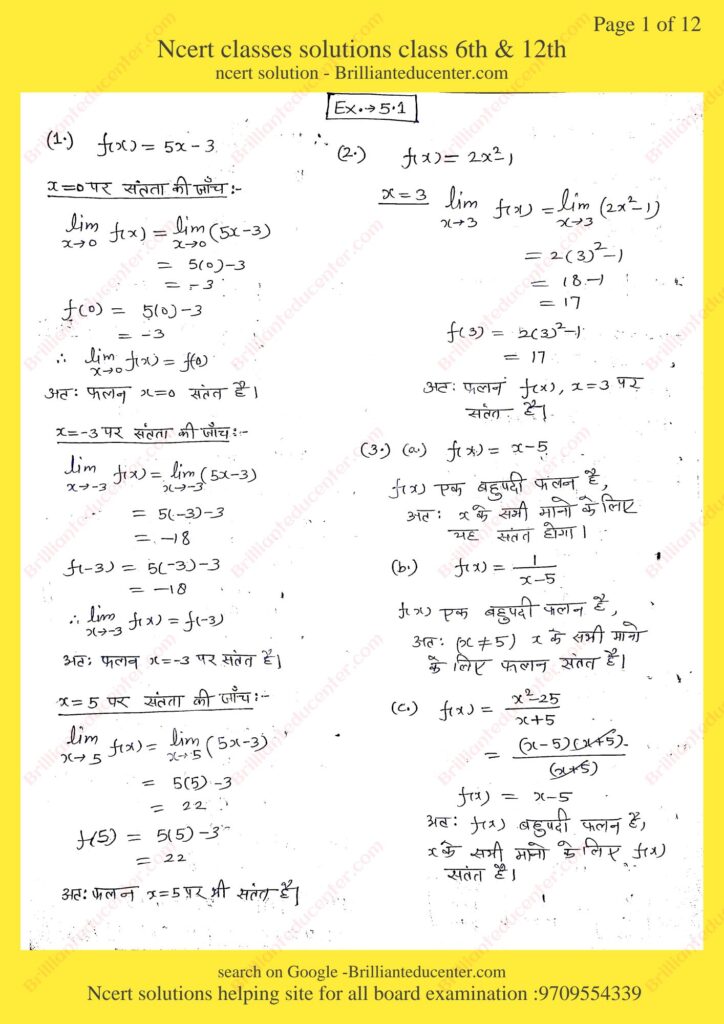 Page 1 of 12
Ncert classes solutions class 6th & 12th
ncert solution - Brillianteducenter.com
Ex.→5.1
(1.) f(x) = 5x-3
x=0 पर संतता की जाँच:-
lim x→0 f(x) = lim x→0 (5x-3)
= 5(0)-3
= -3
f(0) = 5(0)-3
= -3
∴ lim x→0 f(x) = f(0)
अतः फलन x=0 संतत है।
x=-3 पर संतता की जाँच:-
lim x→-3 f(x) = lim x→-3 (5x-3)
= 5(-3)-3
= -18
f(-3) = 5(-3)-3
= -18
∴ lim x→-3 f(x) = f(-3)
अतः फलन x=-3 पर संतत है।
x=5 पर संतता की जाँच:-
lim x→5 f(x) = lim x→5 (5x-3)
= 5(5)-3
= 22
f(5) = 5(5)-3
= 22
अतः फलन x=5 पर भी संतत है।
(2.) f(x) = 2x²-1
x=3 lim x→3 f(x) = lim x→3 (2x²-1)
= 2(3)²-1
= 18-1
= 17
f(3) = 2(3)²-1
= 17
अतः फलन f(x), x=3 पर
संतत है।
(3.) (a.) f(x) = x-5
f(x) एक बहुपदी फलन है,
अतः x के सभी मानो के लिए
यह संतत होगा।
(b.) f(x) = 1/(x-5)
f(x) एक बहुपदी फलन है,
अतः (x≠5) x के सभी मानो
के लिए फलन संतत है।
(c.) f(x) = (x²-25)/(x+5)
= (x-5)(x+5)/(x+5)
f(x) = x-5
अतः f(x) बहुपदी फलन है,
x के सभी मानो के लिए f(x)
संतत है।
search on Google -Brillianteducenter.com
Ncert solutions helping site for all board examination :9709554339